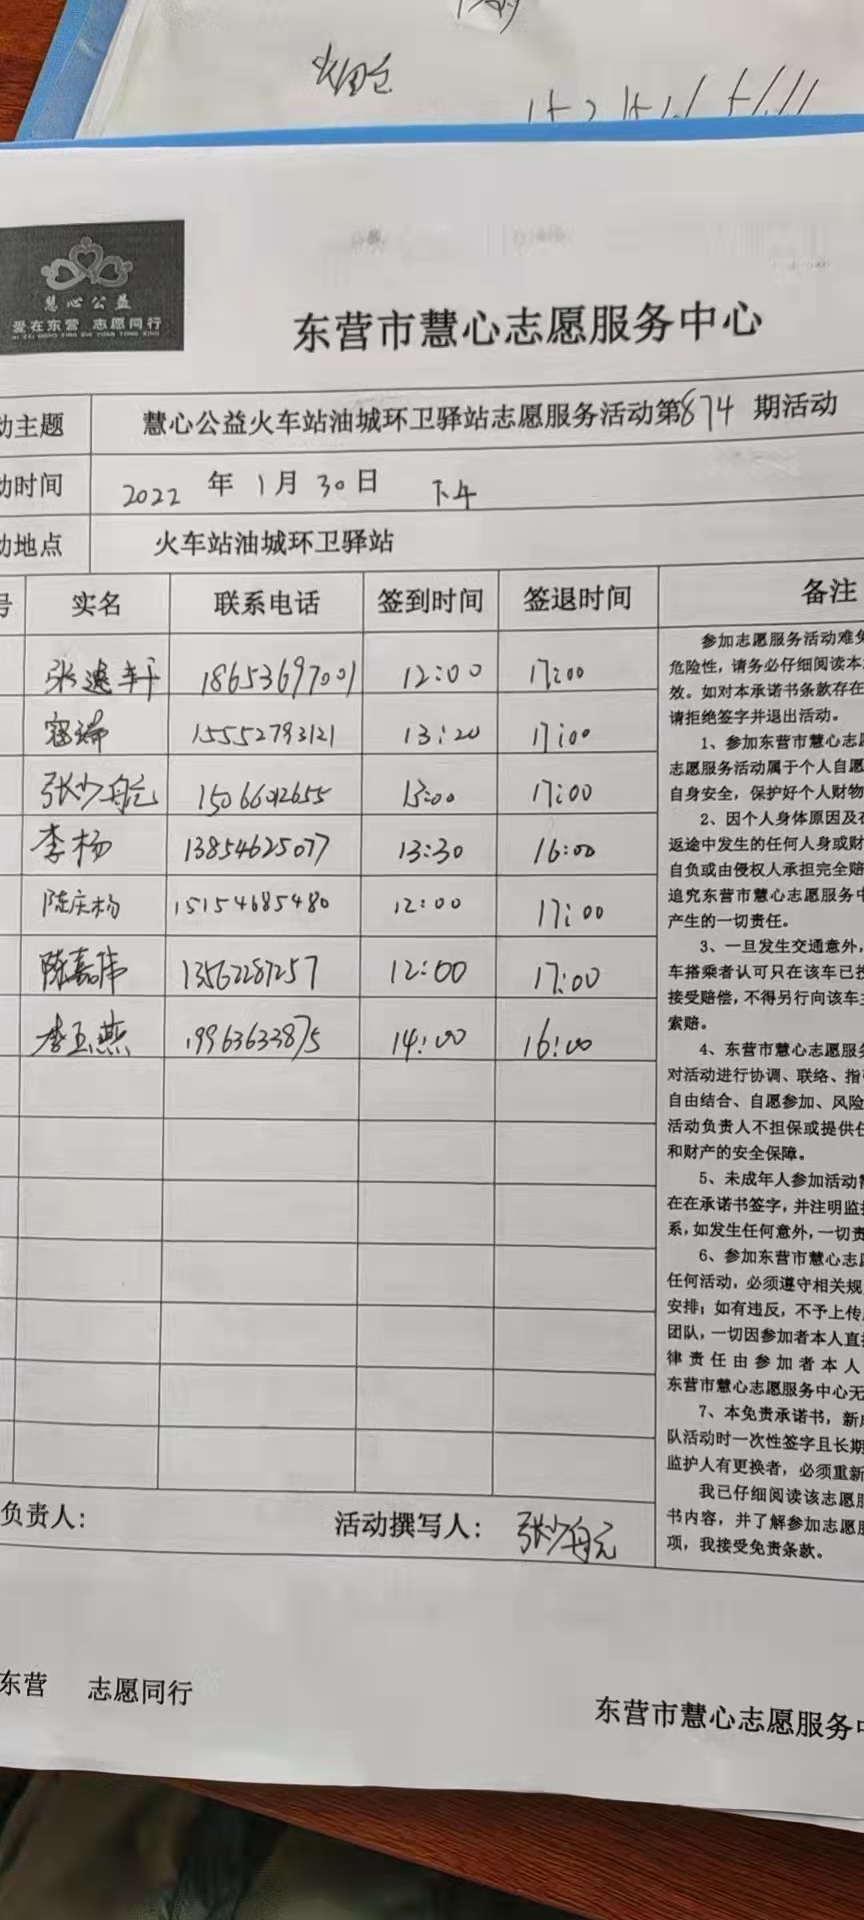 慧心公益
爱在东营 志愿同行
东营市慧心志愿服务中心
动主题 慧心公益火车站油城环卫驿站志愿服务活动第874期活动
动时间 2022年1月30日 下午
动地点 火车站油城环卫驿站
号 实名 联系电话 签到时间 签退时间 备注
18653697001 12:00 17:00
15552793121 13:20 17:00
15066012655 13:00 17:00
李杨 13854625077 13:30 16:00
陈庆杨 15154685480 12:00 17:00
陈嘉伟 13562287257 12:00 17:00
李玉燕 19963633875 14:00 16:00
参加志愿服务活动难免
危险性，请务必仔细阅读本
效。如对本承诺书条款存在
请拒绝签字并退出活动。
1、参加东营市慧心志愿
志愿服务活动属于个人自愿
自身安全，保护好个人财物
2、因个人身体原因及在
返途中发生的任何人身或财
自负或由侵权人承担完全赔
追究东营市慧心志愿服务中
产生的一切责任。
3、一旦发生交通意外，
车搭乘者认可只在该车已投
接受赔偿，不得另行向该车主
索赔。
4、东营市慧心志愿服务
对活动进行协调、联络、指引
自由结合、自愿参加、风险
活动负责人不担保或提供任
和财产的安全保障。
5、未成年人参加活动需
在在承诺书签字，并注明监护
系，如发生任何意外，一切责
6、参加东营市慧心志愿
任何活动，必须遵守相关规
安排；如有违反，不予上传
团队，一切因参加者本人直接
律责任由参加者本人
东营市慧心志愿服务中心无
7、本免责承诺书，新
队活动时一次性签字且长期
监护人有更换者，必须重新
我已仔细阅读该志愿服
书内容，并了解参加志愿服
项，我接受免责条款。
负责人： 活动撰写人：
东营 志愿同行
东营市慧心志愿服务中